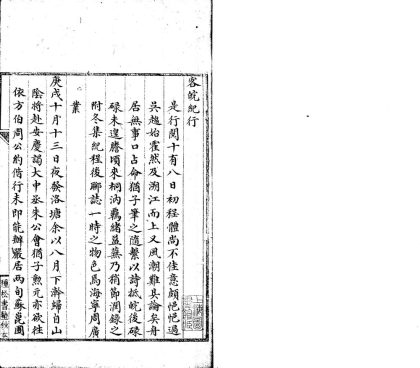 客皖紀行
是行閱十有八日初程體尚不佳意頗悒悒過
吳趨始霍然及溯江而上又風潮難具論矣舟
居無事口占命猶子筆之隨繫以詩抵皖後碌
碌未遑謄頃來桐汭羈緒益蕪乃稍節潤錄之
附冬集紀程後聊誌一時之物色焉海寧周廣
業
庚戌十月十三日夜發洛塘余以八月下澣歸自山
陰將赴安慶謁大中丞朱公會猶子勲元亦欲往
依方伯周公約偕行未即能辦嚴居兩旬蘇崑圃
種松書塾鈔本